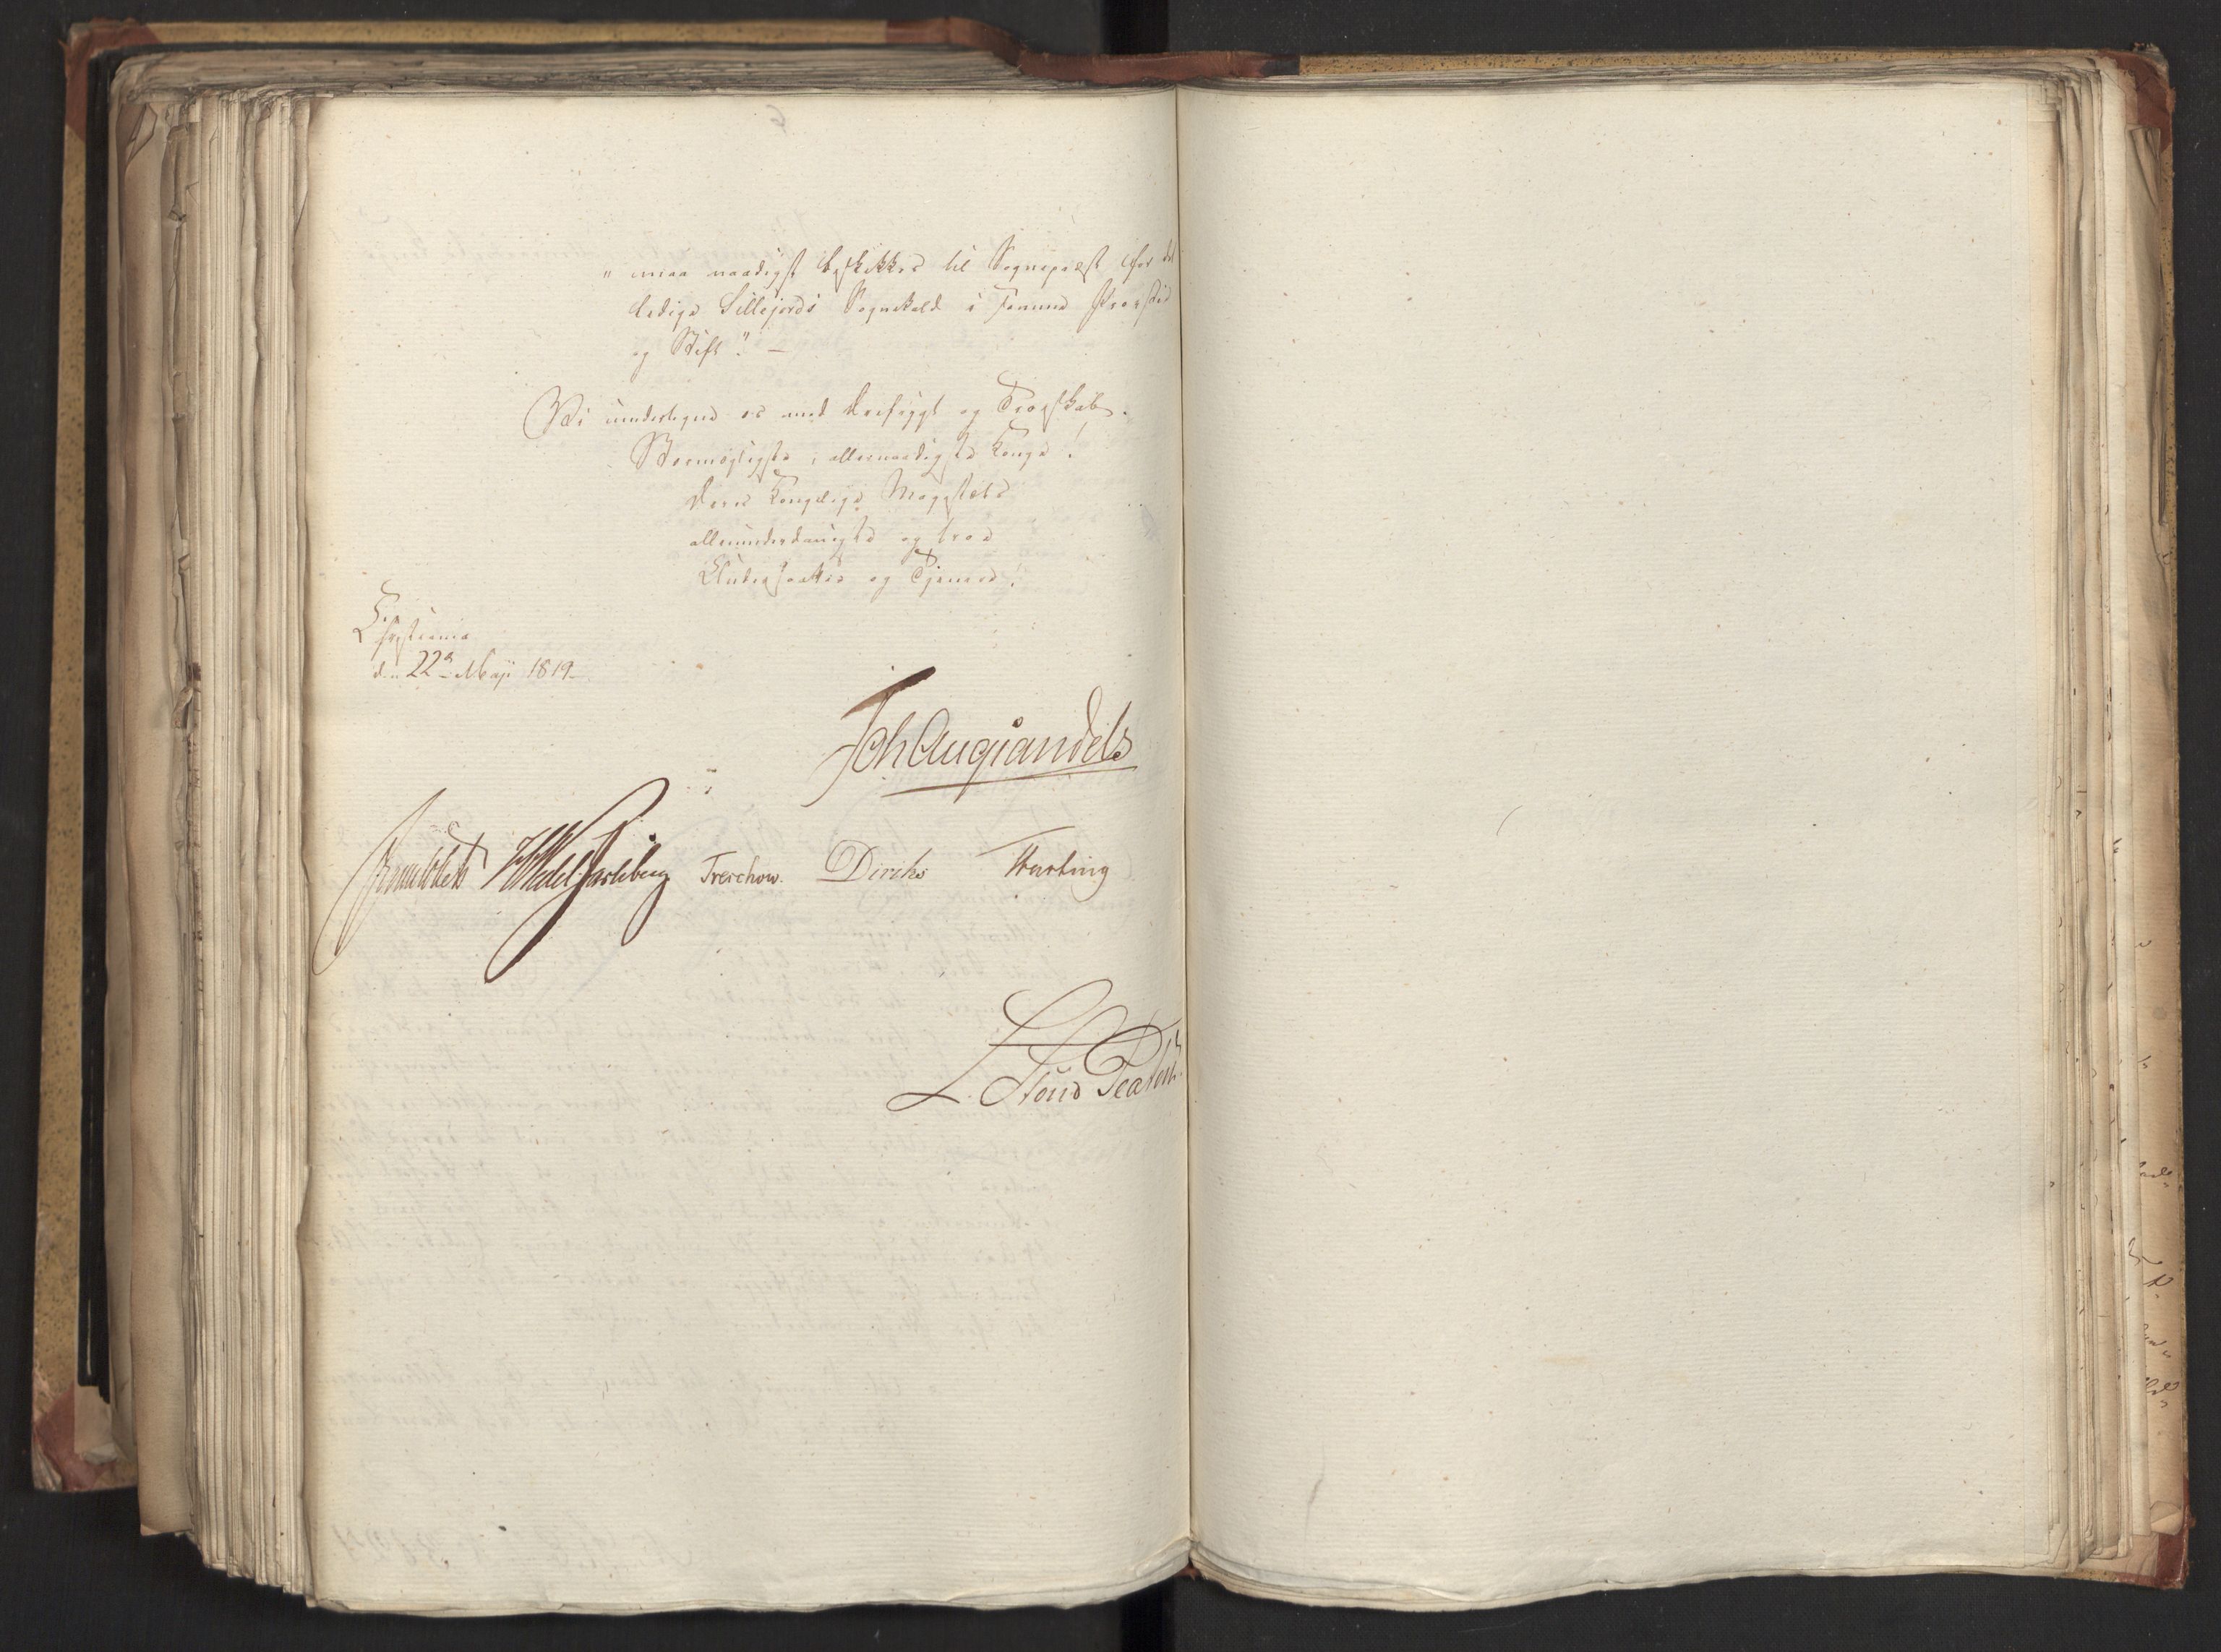 " maa naadigst beskikkes til Sognepræst for det
ledige Sillejords Sognekald i samme Provstie
og Stift." —
Vi undertegne os med Ærefrygt og Troskab.
Stormægtigste, allernaadigste Konge!
Deres Kongelige Majestæts
allerunderdanigste og troe
Undersaatter og Tjenere!
Christiania
den 22de Maji 1819.
Joh Aug Sandels
HWedel Jarlsberg Treschow. Diriks Motzfeldt
L. Stoud Platou